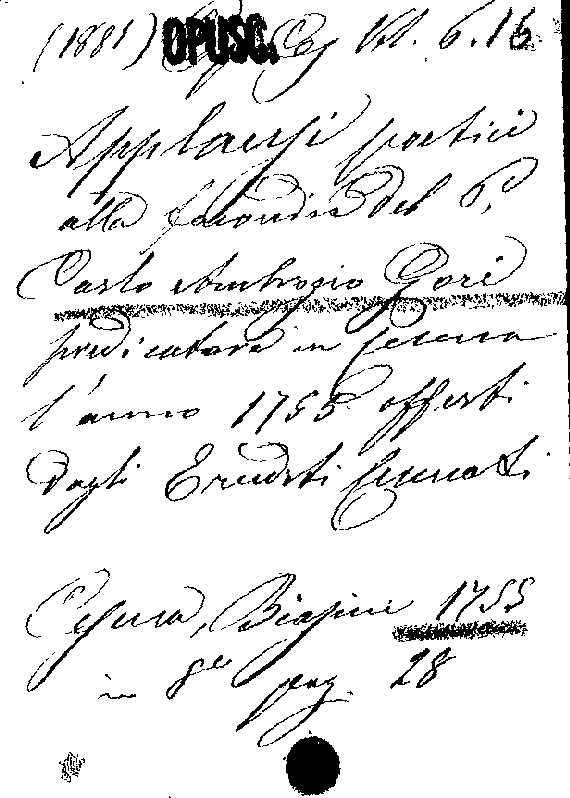 (1881) OPUSC. Vol. 6.16
Applausi poetici
alla facondia del P.
Carlo Ambrogio Gori
predicatore in Cesena
l'anno 1755 offerti
dagli Eruditi Cesenati
Cesena, Biasini 1755
in 8° pag. 28